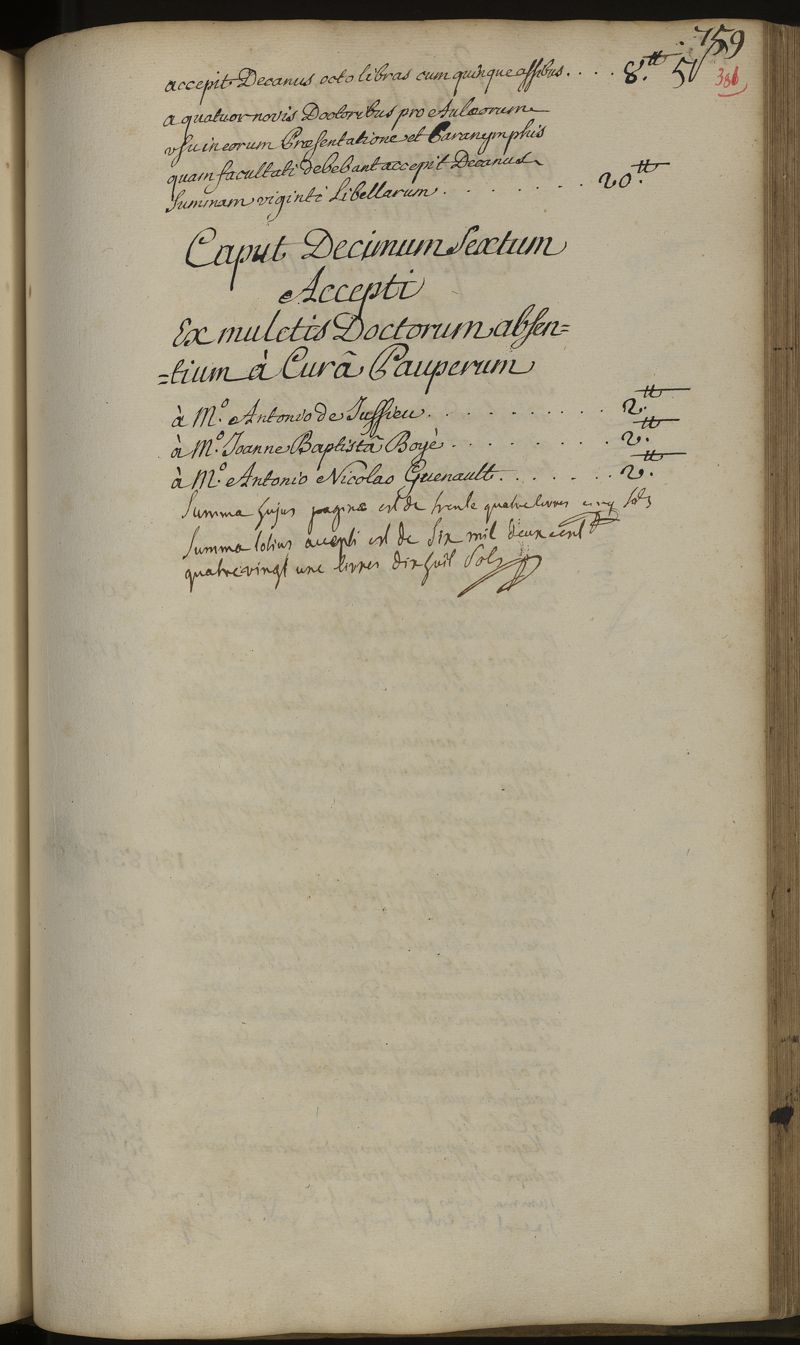 759
386
accepit Decanus octo libras cum quinque assibus. . . . 8.tt 5
a quatuor novis Doctoribus pro Aulæorum
usu in eorum Præsentatione et Paranymphis
quam facultati debebant accepit Decanus
Summam viginti Libellarum . . . . . . . . 20.tt
Caput Decimum Sextum
Accepti
Ex mulctis Doctorum absen=
=tium à Curâ Pauperum
à M.o Antonio de Jussieu. . . . . . . . . . 2.tt
à M.o Joanne Baptistâ Boyè . . . . . . . . 2.tt
à M.o Antonio Nicolao Guenault. . . . . . . 2.tt
Summa hujus paginæ est de trente quatre livres cinq sols
Summa totius accepti est de Six mil deux cent
quatrevingt une livres dix huit Sols